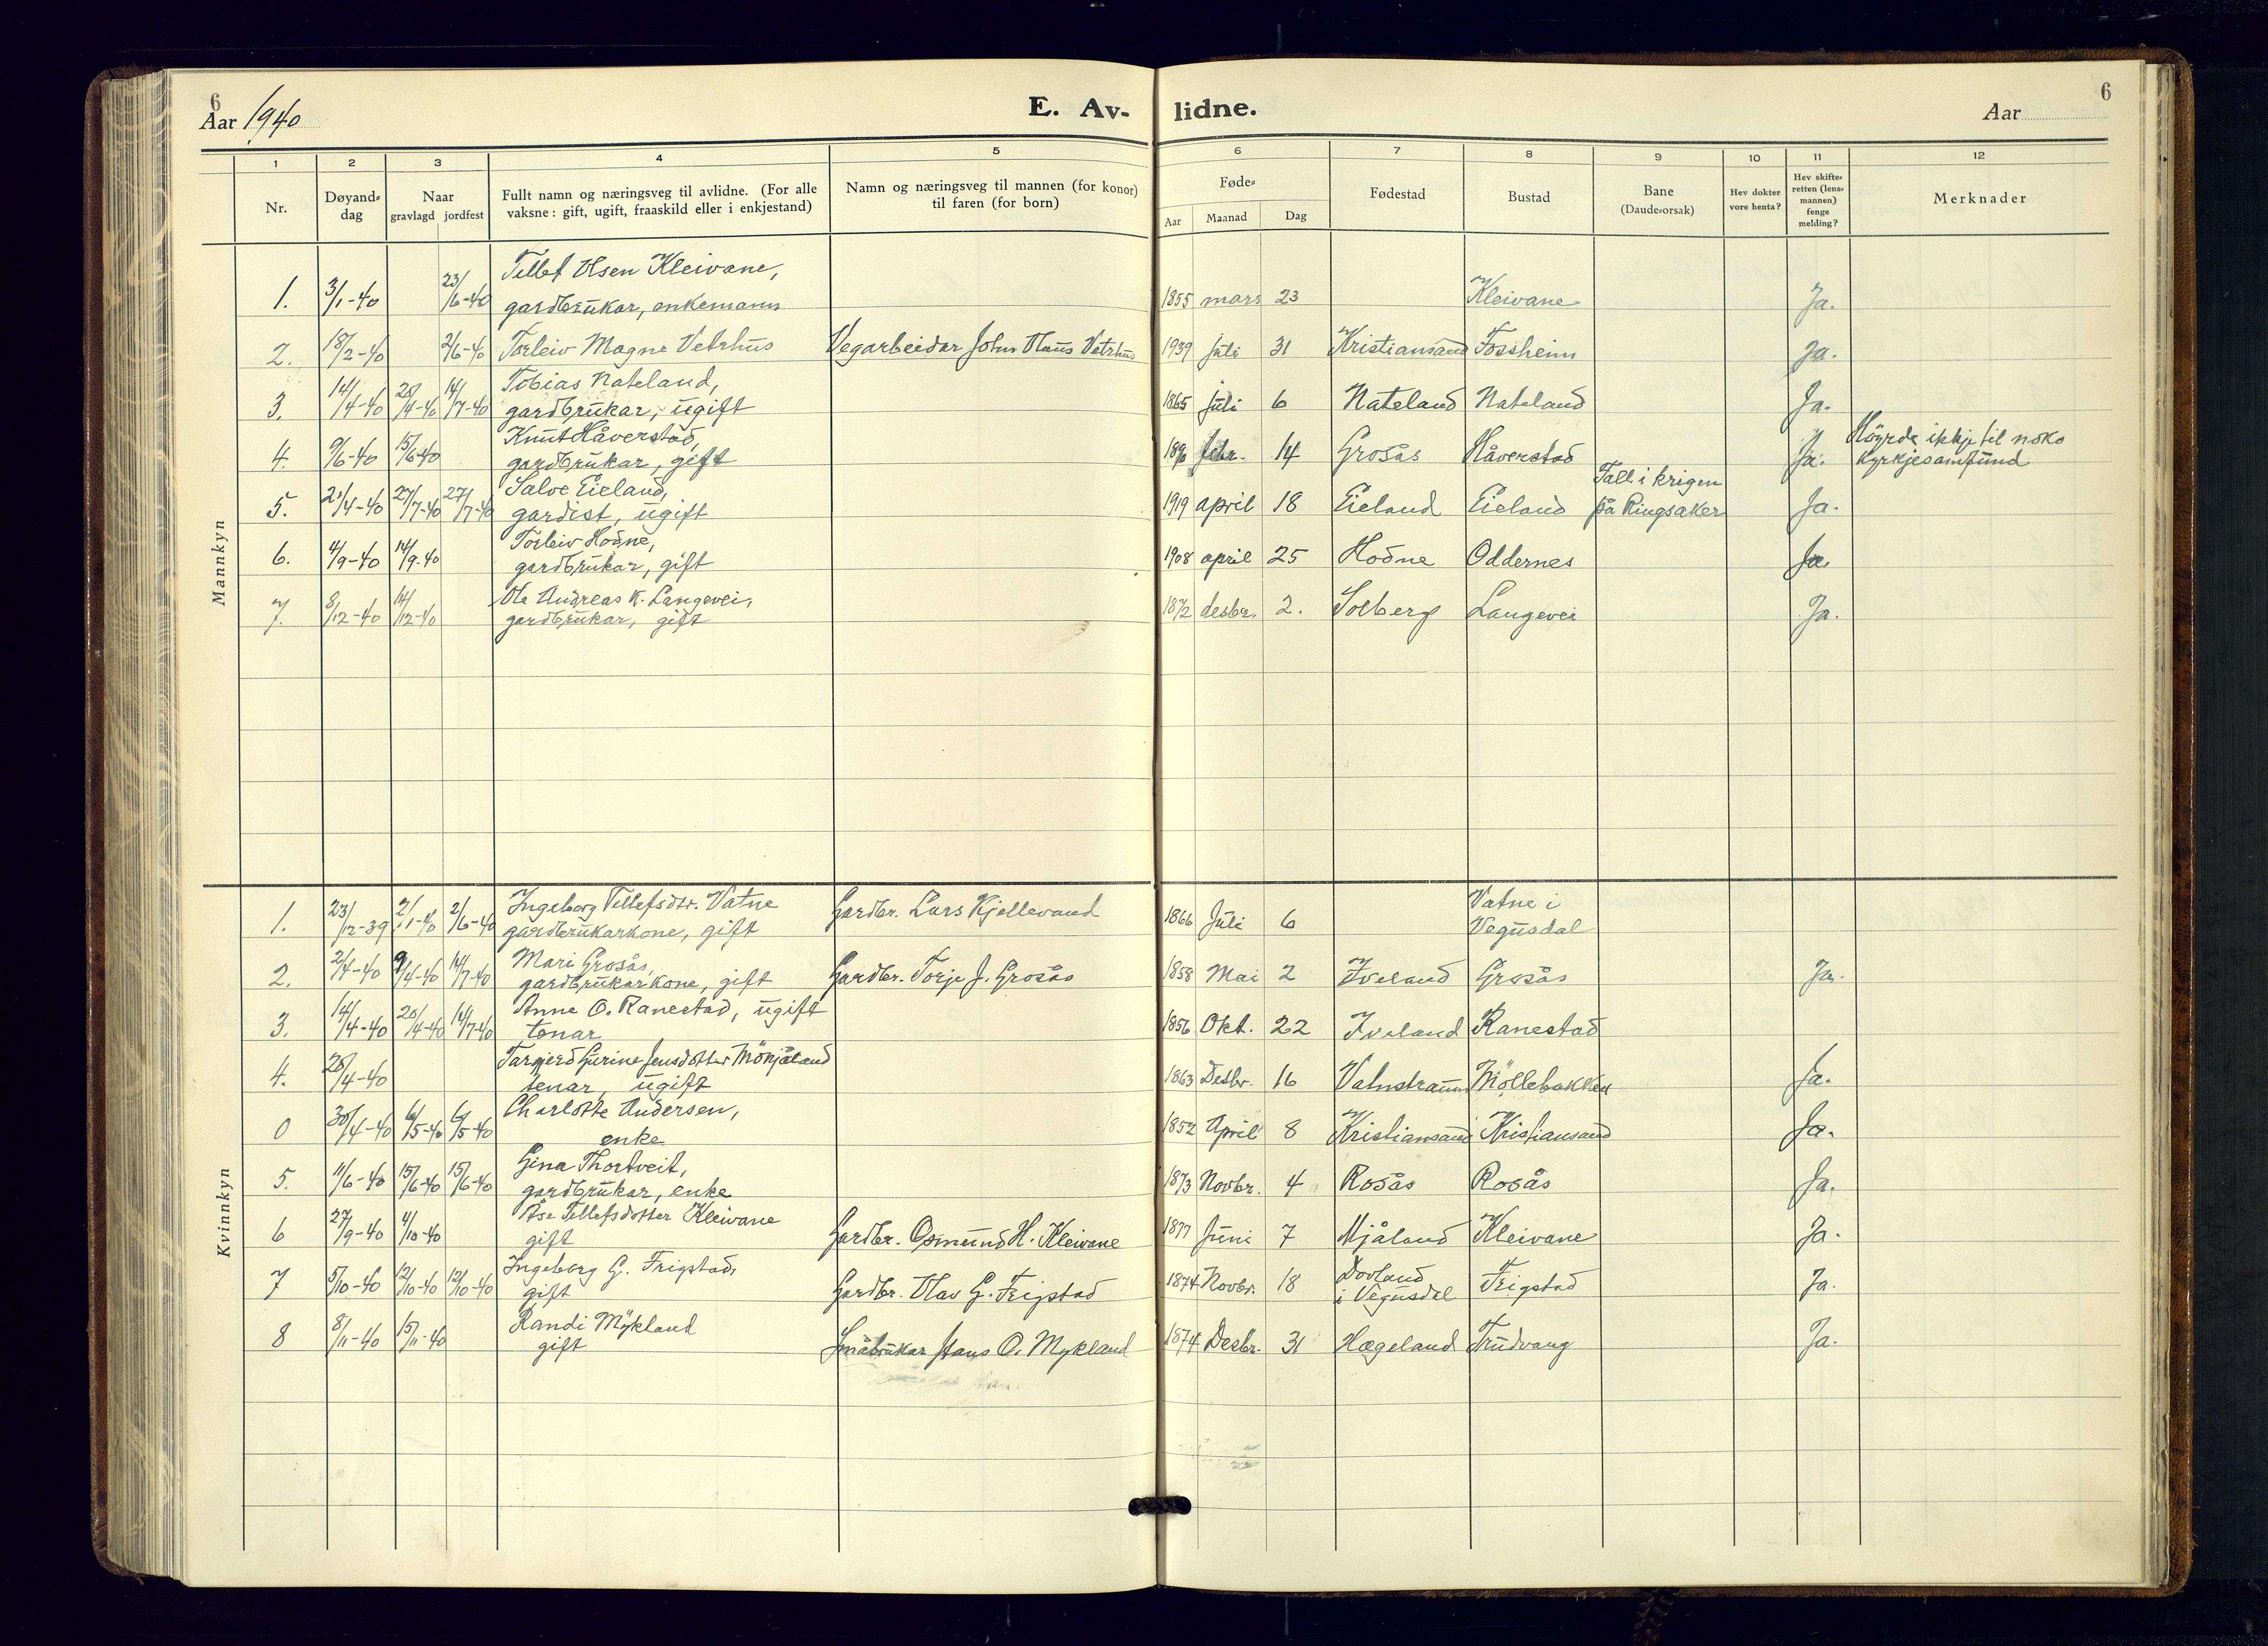 6
Aar 1940
E. Av-
lidne.
Aar
6
1
2
3
4
5
6
7
8
9
10
11
12
Nr.
Døyand=
dag
Naar
gravlagd jordfest
Fullt namn og næringsveg til avlidne. (For alle
vaksne: gift, ugift, fraaskild eller i enkjestand)
Namn og næringsveg til mannen (for konor)
til faren (for born)
Føde=
Aar Maanad Dag
Fødestad
Bustad
Bane
(Daude=orsak)
Hev dokter
vore henta?
Hev skifte=
retten (lens=
mannen)
fenge
melding?
Merknader
Mannkyn
1. 3/1-40 23/6-40 Tellef Olsen Kleivane,
gardbrukar, enkemann 1855 mars 23 Kleivane Ja.
2. 18/2-40 2/6-40 Torleiv Magne Vetrhus Vegarbeidar John Olaus Vetrhus 1939 juli 31 Kristiansand Fossheim Ja.
3. 14/4-40 20/4-40 14/7-40 Tobias Nateland,
gardbrukar, ugift 1865 juli 6 Nateland Nateland Ja.
4. 9/6-40 15/6-40 Knut Håverstad,
gardbrukar, gift febr. 14 Grosås Håverstad Ja. Höyrde ikkje til noko
kyrkjesamfund
5. 27/7-40 27/7-40 Salve Eieland,
gardist, ugift 1919 april 18 Eieland Eieland Fall i krigen
på Ringsaker Ja.
6. 4/9-40 14/9.40 Torleiv Hodne,
gardbrukar, gift 1908 april 25 Hodne Oddernes Ja.
7. 8/12-40 14/12-40 Ole Andreas K. Langevei,
gardbrukar, gift 1872 desbr. 2. Solberg Langevei Ja.
Kvinnkyn
1. 23/12-39 2/1-40 2/6-40 Ingeborg Tellefsdtr. Vatne
gardbrukarkone, gift Gardbr. Lars Kjellevand 1866 Juli 6 Vatne i
Vegusdal
2. 2/4-40 9/4-40 14/7-40 Mari Grosås,
gardbrukarkone, gift Gardbr. Torje J. Grosås 1858 Mai 2 Iveland Grosås Ja.
3. 14/4-40 20/4-40 14/7-40 Anne O. Ranestad, ugift
tenar 1856 Okt. 22 Iveland Ranestad
4. 28/4-40 Targjerd Gurine Jensdotter
tenar, ugift 1863 Desbr. 16 Vatnstraum Möllebakken Ja.
0 30/4-40 6/5-40 6/5-40 Charlotte Andersen,
enke 1852 April 8 Kristiansand Kristiansand Ja.
5. 11/6-40 15/6-40 15/6-40 Gina Thortveit,
gardbrukar, enke 1873 Novbr. 4 Rosås Rosås Ja.
6 27/9-40 4/10-40 Åse Tellefsdotter Kleivane
gift Gardbr. Osmund H. Kleivane 1877 Juni 7 Mjåland Kleivane Ja.
7 5/10-40 12/10-40 12/10-40 Ingeborg G. Frigstad,
gift Gardbr. Olav G. Frigstad 1874 Novbr. 18 Dovland
i Vegusdal Frigstad Ja.
8 8/11-40 15/11-40 Randi Mykland
gift Småbrukar Hans O. Mykland 1874 Desbr. 31 Hægeland Trudvang Ja.